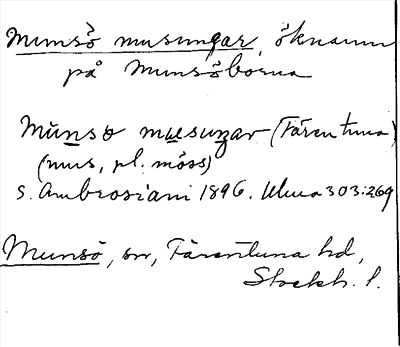 Munsö musungar, öknamn
på Munsöborna
Munsö musungar (Färentuna)
(mus, pl. möss)
S. Ambrosiani 1896. Uluma 303:269
Munsö, sn, Färentuna hd,
Stockh. l.